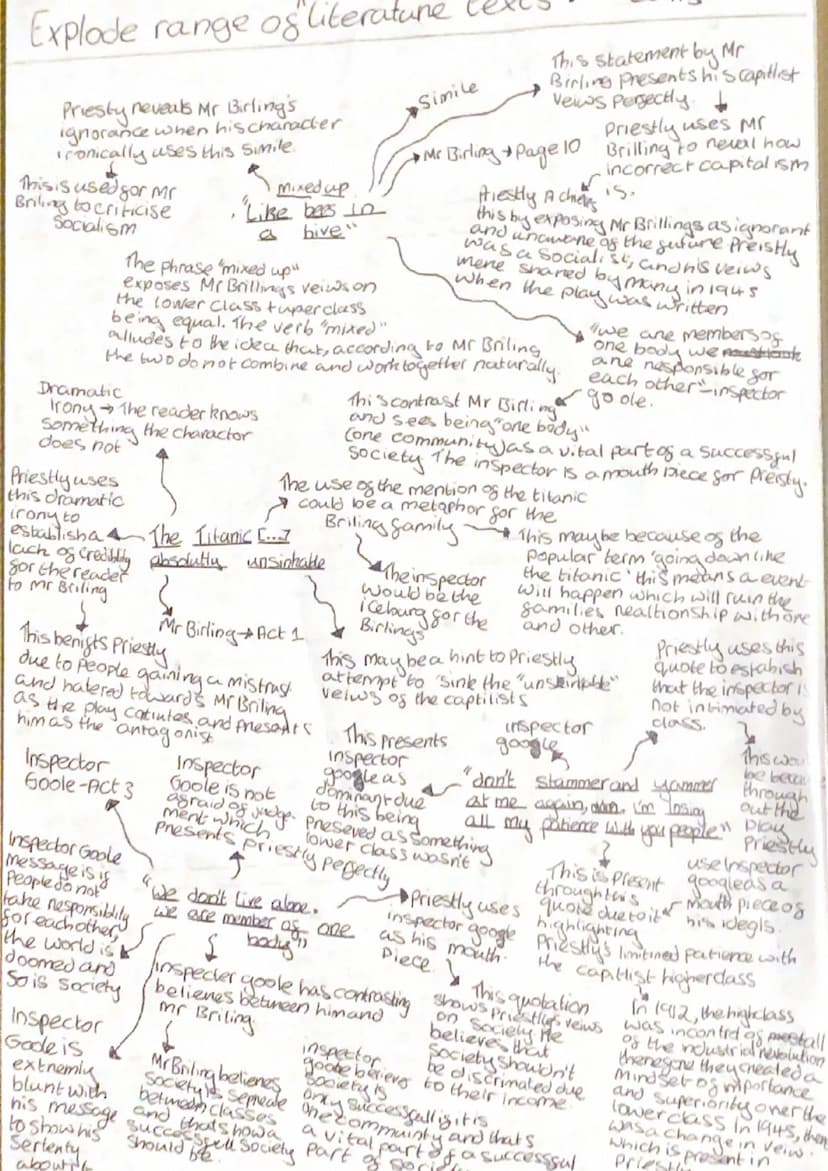 Explode range of literature texts
This statement by Mr
Birling presents his capitlist
veiws perfectly.
Simile
Mr Birling → Page 10
Priestly reveals Mr Birling's
ignorance when his character
ironically uses this simile.
This is used for Mr
Briling to criticise
Socialism
mixed up
"Like bees in
a hive"
Priestly uses Mr
Brilling to reveal how
incorrect capitalism
is.
Priestly Achieves
this by exposing Mr Brillings as ignorant
and unaware of the future Preistly
was a Socialist, and his veiws
were shared by many in 1945
when the play was written
The phrase "mixed up"
exposes Mr Brillings veiws on
the lower class + uperclass
being equal. The verb "mixed"
alludes to the idea that, according to Mr Briling
the two do not combine and work together naturally.
"we are members of
one body we
are responsible for
each other" - inspector
goole.
This contrast Mr Birling
and sees being "one body"
(one community) as a vital part of a successful
society The inspector is a mouth piece for Preisty.
Dramatic
Irony → The reader knows
something the charactor
does not
Priestly uses
this dramatic
irony to
establish a
lack of credibility
for the reader
to Mr Briling
The Titanic [...]
absolutly unsinkable
Mr Birling → Act 1
The use of the mention of the titanic
could be a metaphor for the
Briling family
The inspector
would be the
iceburg for the
Birlings
This maybe because of the
popular term 'going down like
the titanic' this means a event
will happen which will ruin the
families realtionship with one
and other.
This benifts Priestly
due to people gaining a mistrust
and hatered towards Mr Briling
as the play continues and presents
him as the antagonist
This may be a hint to Priestly
attempt to "sink the "unsinkable"
veiws of the captilists
Priestly uses this
quote to estabish
that the inspector is
not intimated by
class.
inspector
google
"don't stammer and yammer
at me again, man. i'm losing
all my patience with you people"
This presents
inspector
google as
dominant due
to this being
preseved as something
lower class wasn't
This
be
through
out the
play
Priestly
use Inspector
google as a
mouth piece of
his ideals.
This is present
through this
quote due to it
highlighting
Priestly's limitined patience with
the capitlist higher class
In 1912, the high class
was in control of
of the industrial revolution
therefore they created a
mindset of importance
and superiority over the
lower class In 1945, there
was a change in veiw.
which is present in
Priestly
Inspector
Goole - Act 3
Inspector
Goole is not
afraid of judge-
ment which
presents priestly perfectly
"we don't live alone.
we are member of one
body"
Inspector Goole
message is if
people do not
take responsiblity
for each other
the world is
doomed and
so is society
Priestly uses
inspector google
as his mouth
piece
This quotation
shows Priestlys veiws
on society He
believes that
society shouldn't
be discrimated due
to their income.
inspecter goole has contrasting
believes between him and
Mr Briling.
Mr Briling believes
society is seprate
between classes
and thats how a
successfull society
should be.
inspector
goole believes
society is
only successfull if it is
one community and thats
a vital part of a successful
part of
Inspector
Goole is
extremly
blunt with
his message
to show his
sertenty
about